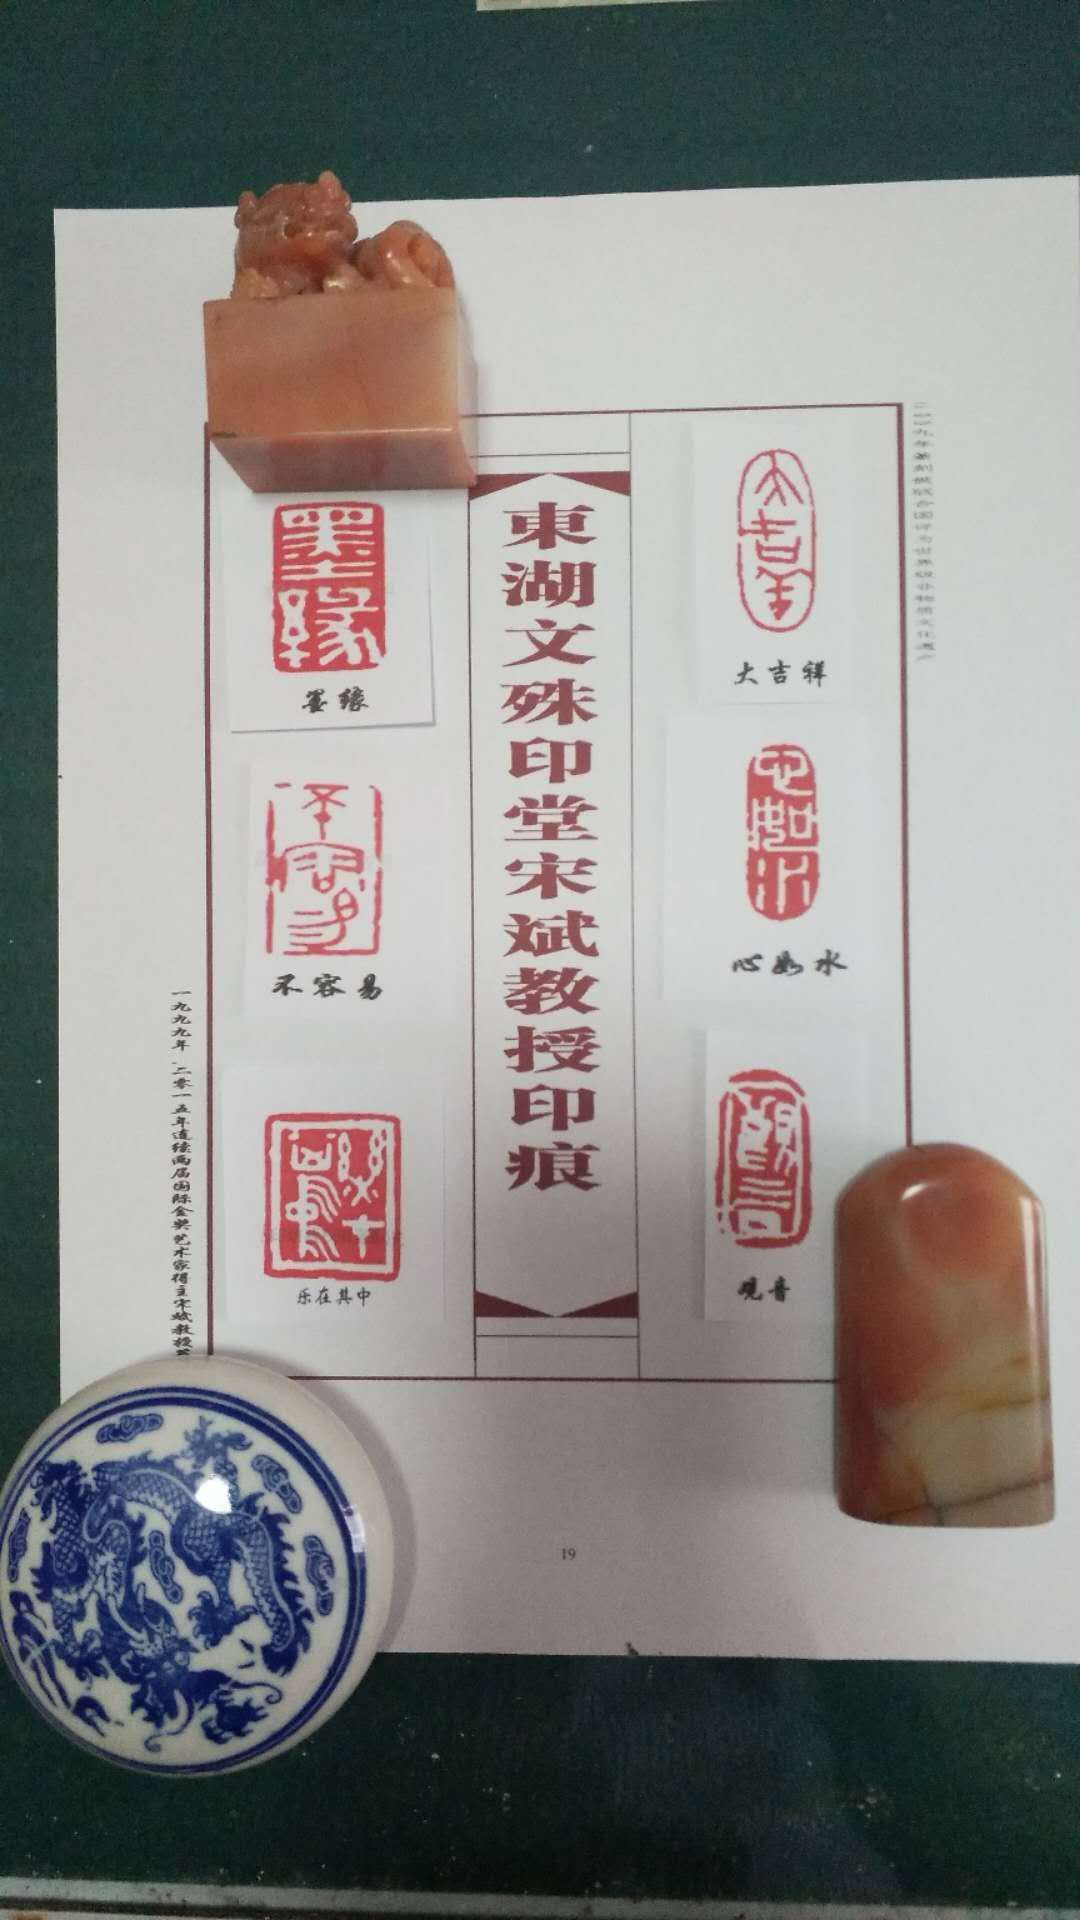 二〇〇九年篆刻被联合国评为世界级非物质文化遗产
大吉祥
大吉祥
心如水
心如水
观音
東湖文殊印堂宋斌教授印痕
墨緣
墨缘
不容易
不容易
乐在其中
一九九九年、二零一五年连续两届国际金奖艺术家得主宋斌教授
19